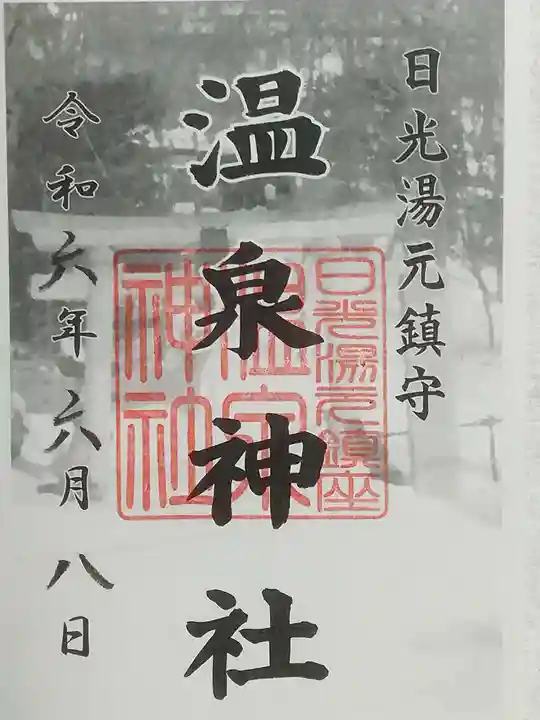 日光湯元鎮守
温泉神社
日光湯元鎮座
温泉
神社
令和六年六月八日